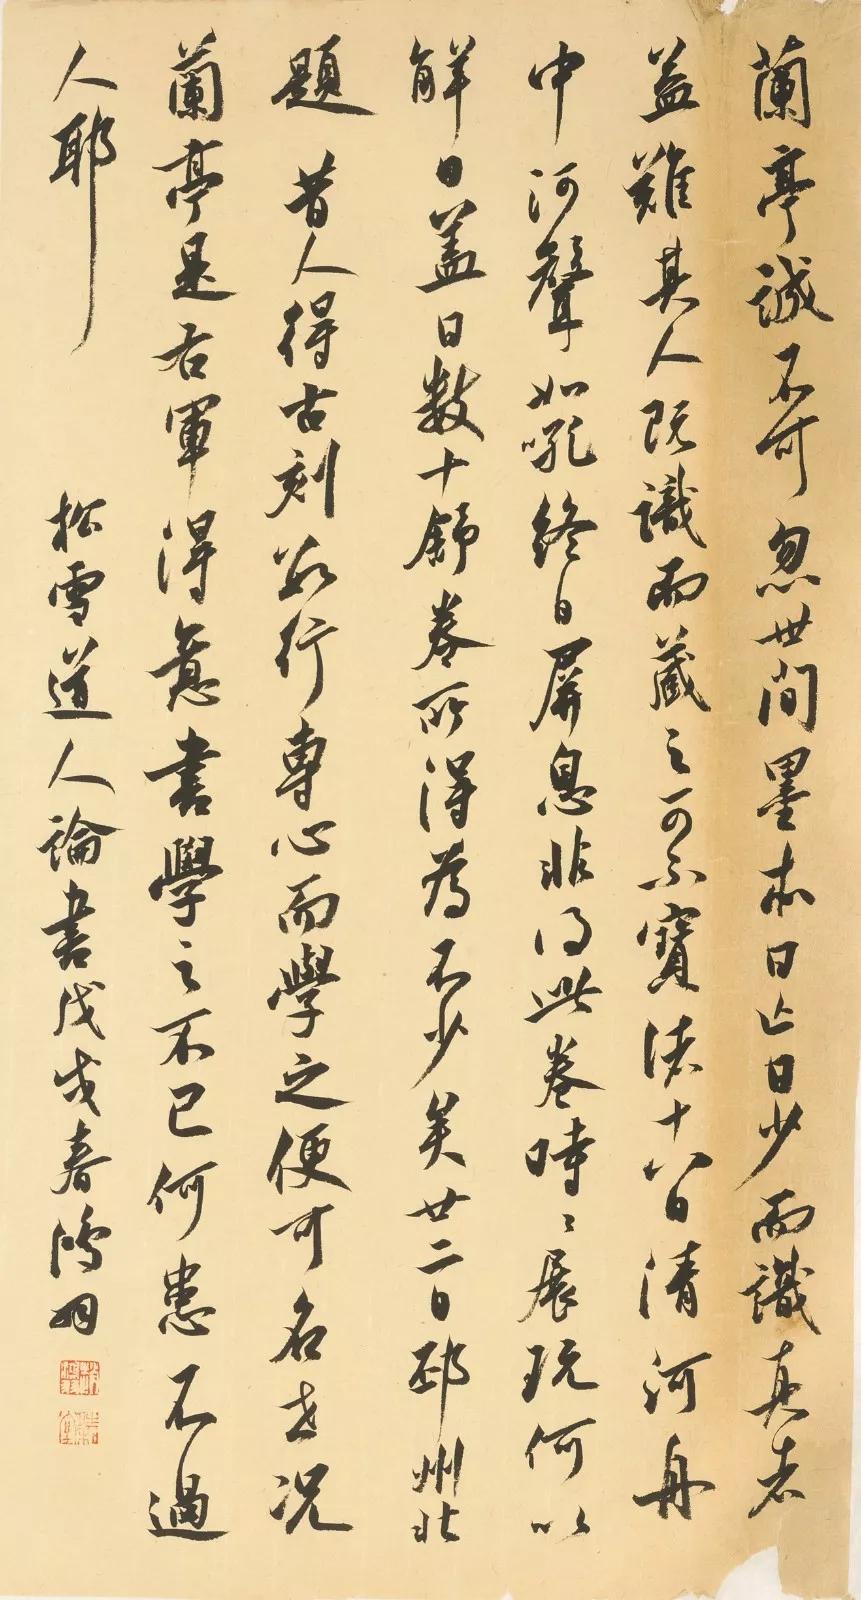 蘭亭誠不可忽世間墨本日亡日少而識真者
益難其人既識而藏之可不寶諸十八日清河舟
中河聲如吼終日屏息非得此卷時〻展玩何以
解日蓋日數十舒卷所得為不少矣廿二日邳州北
題 昔人得古刻數行專心而學之便可名世況
蘭亭是右軍得意書學之不已何患不過
人耶 松雪道人論書戊戌春鴻